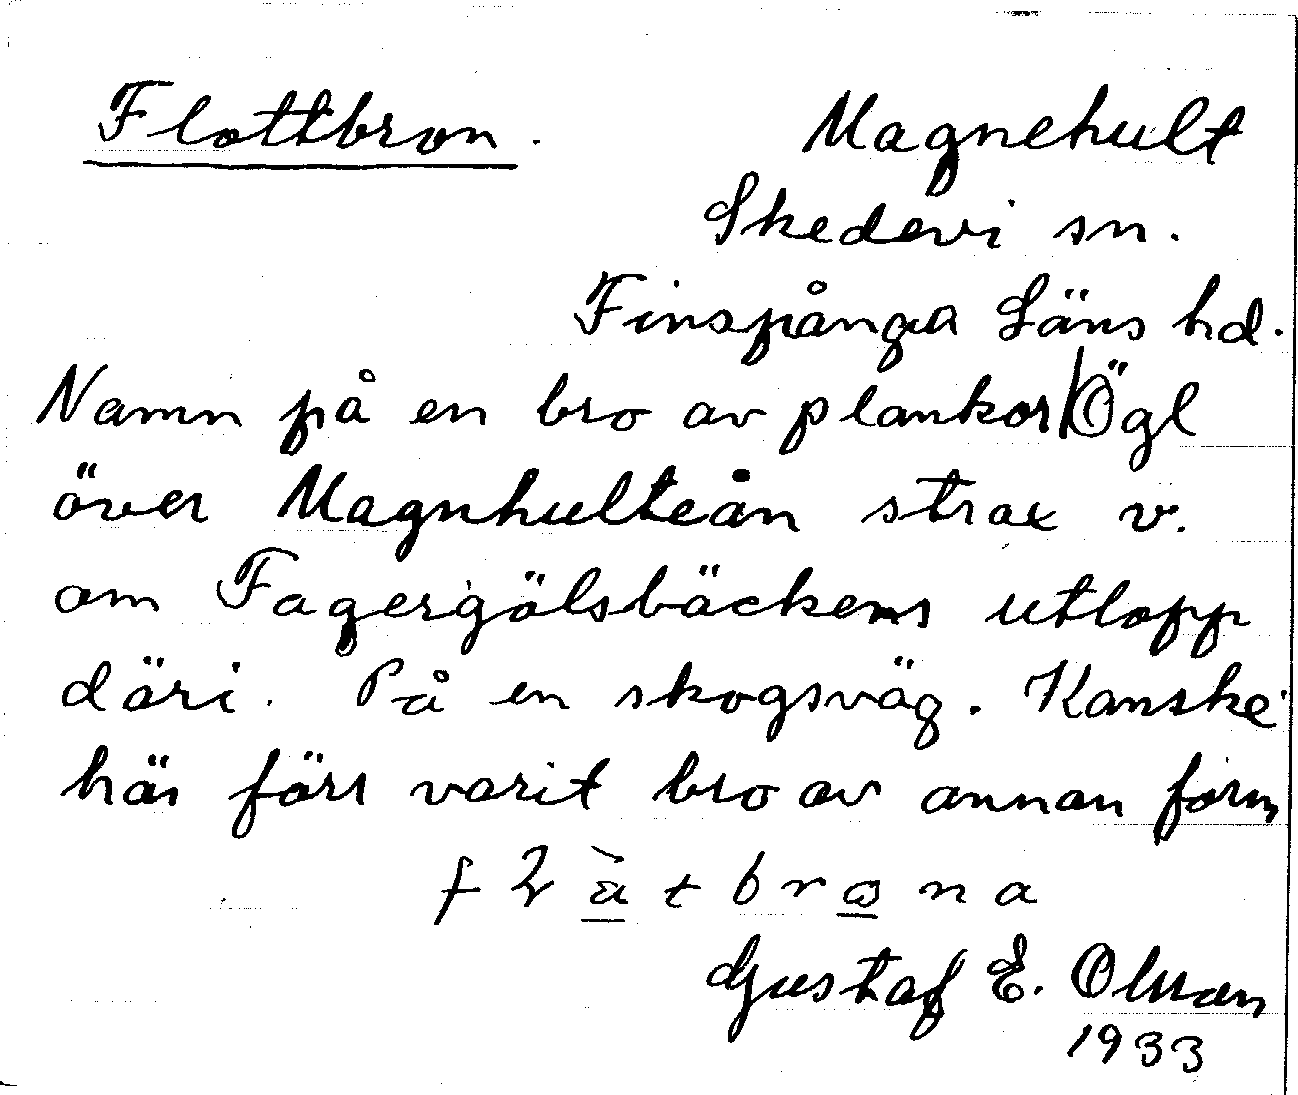 Flottbron. Magnehult
Skedevi sn.
Finspånga Läns hd.
Namn på en bro av plankor Ögl
över Magnhulteån strax v.
om Fagergölsbäckens utlopp
däri. På en skogsväg. Kanske
här förr varit bro av annan form
Gustaf E. Olsson
1933